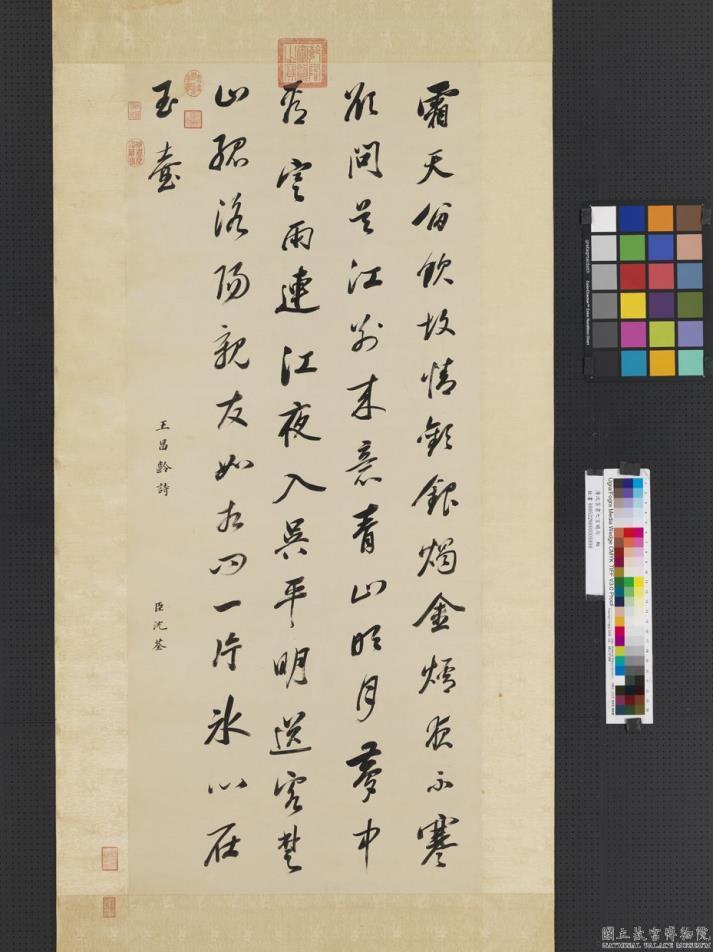 霜天留飲故情歡銀燭金爐夜不寒
欲問吳江別來意青山明月夢中
看寒雨連江夜入吳平明送客楚
山孤洛陽親友如相問一片氷心在
玉壺
王昌齡詩
臣沈荃
Ugra/Fogra Media Wedge CMYK
國立故宮博物院
NATIONAL PALACE MUSEUM